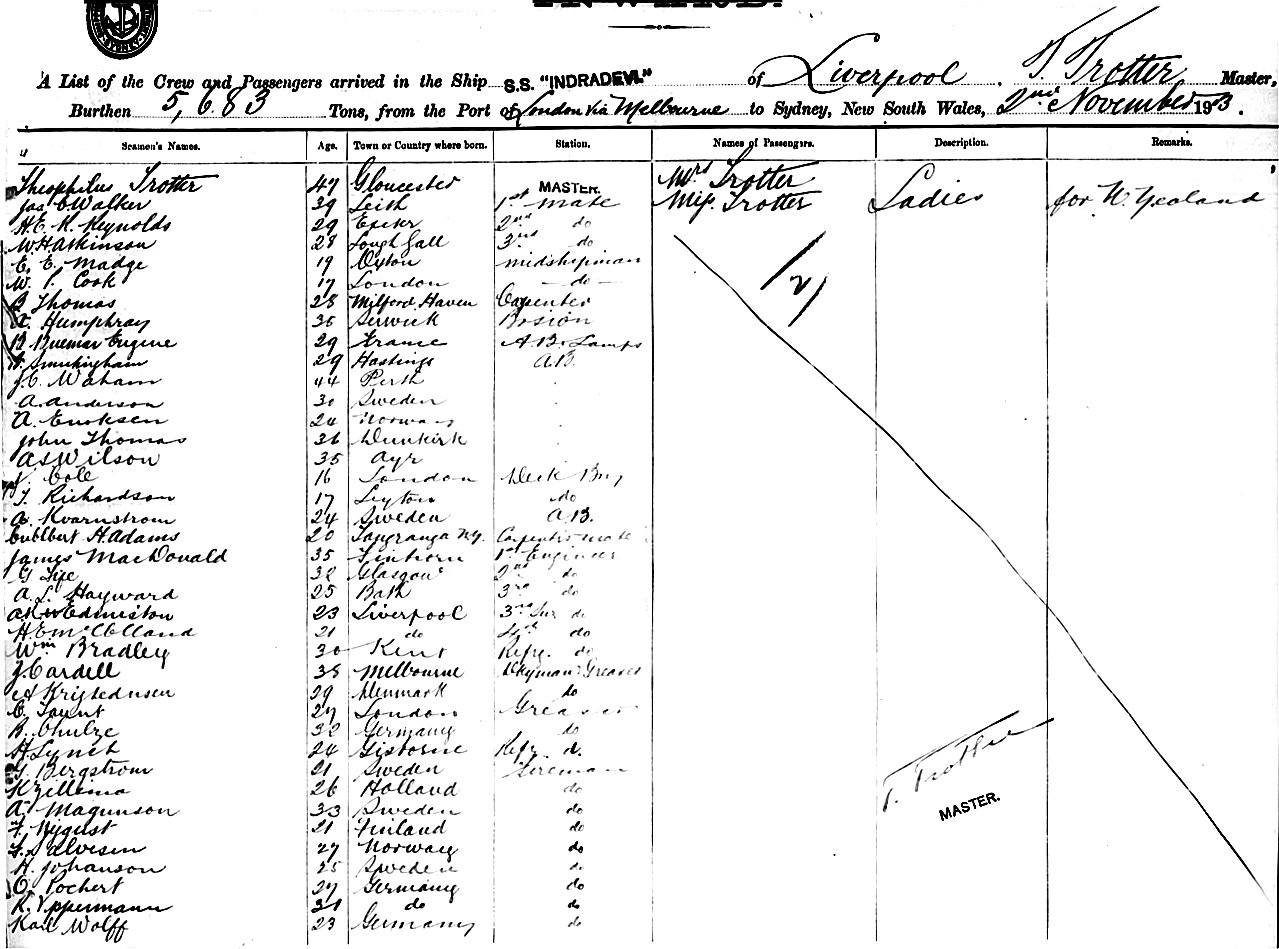 A List of the Crew and Passengers arrived in the Ship S.S. "INDRADEVI." of Liverpool. T. Trotter Master,
Burthen 5,683 Tons, from the Port of London via Melbourne to Sydney, New South Wales, 2nd November 193.
Seamen's Names. Age. Town or Country where born. Station. Names of Passengers. Description. Remarks.
Theophilus Trotter 47 Gloucester MASTER. Mrs Trotter
Jas C Walker 39 Leith 1st mate Miss Trotter Ladies for N. Zealand
H.E. K. Reynolds 29 Exeter 2nd do
W.H. Atkinson 28 Lough Gall 3rd do
E. E. Madge 19 Oxton midshipman
W. P. Cook 17 London - do -
B Thomas 28 Milford Haven Carpenter
Humphray 36 Berwick Bosion
Eugene 29 France A B. Lamps
29 Hastings A.B.
J.C. Maham 44 Perth
A. Anderson 30 Sweden
A. Ericksen 24 Norway
John Thomas 36 Dunkirk
A S Wilson 35 Ayr
Cole 16 London Deck Boy
T. Richardson 17 Leyton do
A. Kvarnstrom 24 Sweden A.B.
Cuthbert H. Adams 20 Carpenters mate
James MacDonald 35 Finhorn 1st Engineer
G Fife 32 Glasgow 2nd do
A. L. Hayward 25 Bath 3rd do
Edmiston 23 Liverpool 3rd Jnr do
H.E. McClelland 21 do 4th do
Wm Bradley 30 Kent Refrg. do
J. Cardell 38 Melbourne Dkyman & Greaser
A Kristednsen 29 Denmark do
C. Taunt 27 London Greaser
R. Chulze 32 Germany do
H. Lynch 24 Gisborne Refg do.
G. Bergstrom 21 Sweden Fireman
K Zillema 26 Holland do
A. Magnnson 33 Sweden do
F. August 21 Finland do
F. Salvesen 27 Norway do
H. Johanson 25 Sweden do
O. Pochert 27 Germany do
K. Uppermann 31 do do
Karl Wolff 23 Germany do
T. Trotter
MASTER.